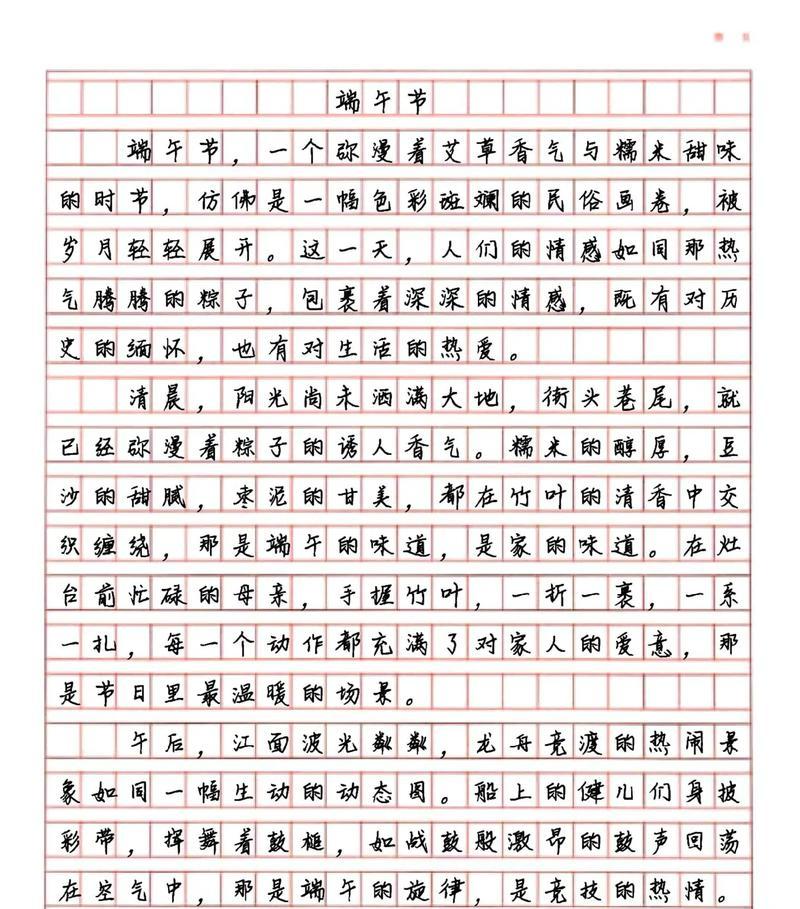 端午节
端午节，一个弥漫着艾草香气与糯米甜味
的时节，仿佛是一幅色彩斑斓的民俗画卷，被
岁月轻轻展开。这一天，人们的情感如同那热
气腾腾的粽子，包裹着深深的情感，既有对历
史的缅怀，也有对生活的热爱。
清晨，阳光尚未洒满大地，街头巷尾，就
已经弥漫着粽子的诱人香气。糯米的醇厚，豆
沙的甜腻，枣泥的甘美，都在竹叶的清香中交
织缠绕，那是端午的味道，是家的味道。在灶
台前忙碌的母亲，手握竹叶，一折一裹，一系
一扎，每一个动作都充满了对家人的爱意，那
是节日里最温暖的场景。
午后，江面波光粼粼，龙舟竞渡的热闹景
象如同一幅生动的动态图。船上的健儿们身披
彩带，挥舞着鼓槌，如战鼓般激昂的鼓声回荡
在空气中，那是端午的旋律，是竞技的热情。